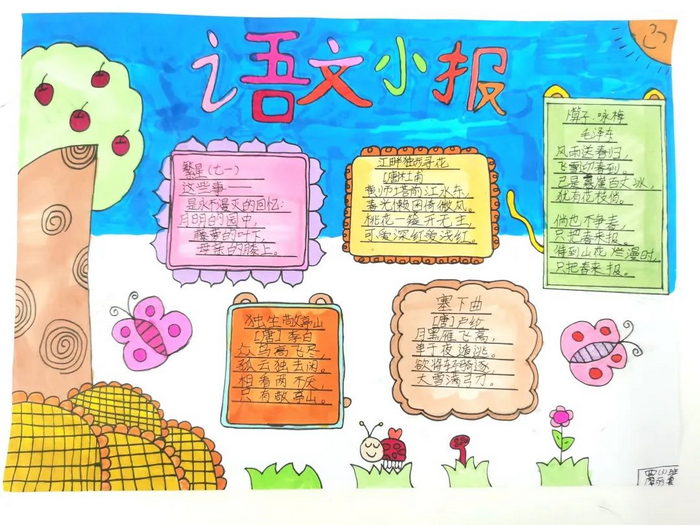 语文小报
繁星(七一)
这些事——
是永不漫灭的回忆:
月明的园中,
藤萝的叶下,
母亲的膝上。
江畔独步寻花
[唐]杜甫
黄师塔前江水东,
春光懒困倚微风。
桃花一簇开无主,
可爱深红爱浅红。
卜算子·咏梅
毛泽东
风雨送春归,
飞雪迎春到。
已是悬崖百丈冰,
犹有花枝俏。
俏也不争春,
只把春来报。
待到山花烂漫时,
只把春来报。
独坐敬亭山
[唐]李白
众鸟高飞尽,
孤云独去闲。
相看两不厌,
只有敬亭山。
塞下曲
[唐]卢纶
月黑雁飞高,
单于夜遁逃。
欲将轻骑逐,
大雪满弓刀。